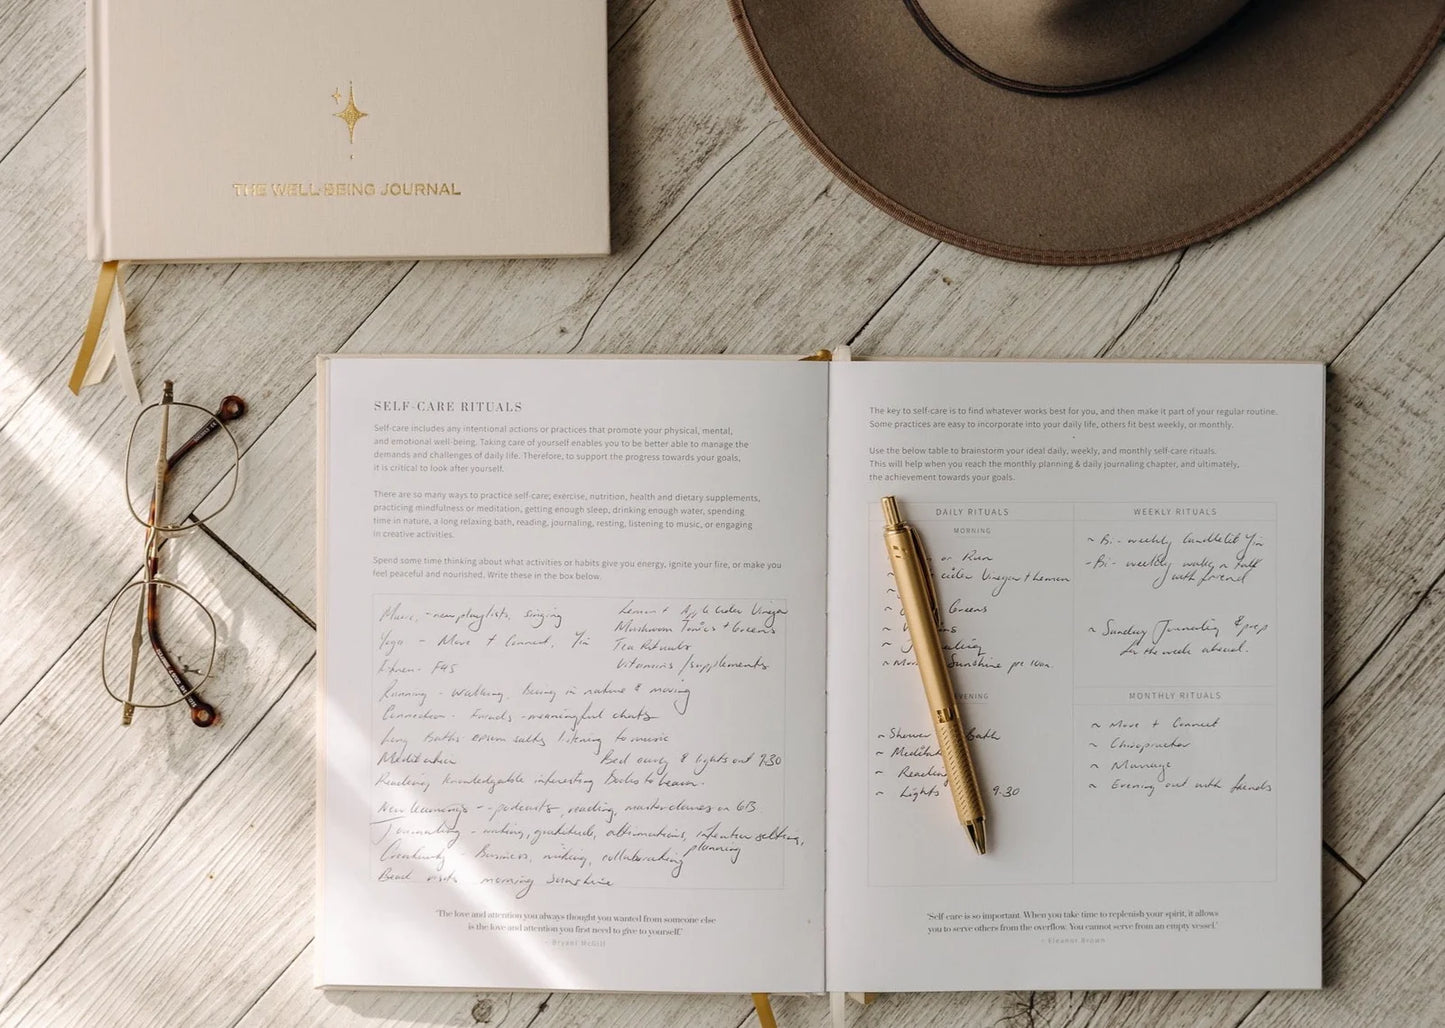 THE WELL-BEING JOURNAL
SELF-CARE RITUALS
Self-care includes any intentional actions or practices that promote your physical, mental,
and emotional well-being. Taking care of yourself enables you to be better able to manage the
demands and challenges of daily life. Therefore, to support the progress towards your goals,
it is critical to look after yourself.
There are so many ways to practice self-care; exercise, nutrition, health and dietary supplements,
practicing mindfulness or meditation, getting enough sleep, drinking enough water, spending
time in nature, a long relaxing bath, reading, journaling, resting, listening to music, or engaging
in creative activities.
Spend some time thinking about what activities or habits give you energy, ignite your fire, or make you
feel peaceful and nourished. Write these in the box below.
Music - new playlists, singing
Lemon + Apple Cider Vinegar
Mushroom Tonics + Greens
Yoga - Move + Connect, Yin
Tea Rituals
F45
Vitamins / supplements
Running - walking, Being in nature & moving
Connection - Friends - meaningful chats
Long Baths epsom salts, listening to music
Meditation
Bed early & lights out 9:30
Reading knowledgable interesting Books to
New learnings - podcasts, reading, masterclasses on
Journaling - writing, gratitude, affirmations, intention setting,
planning
Creativity - Business, writing, collaborating
Beach visits morning Sunshine
"The love and attention you always thought you wanted from someone else
is the love and attention you first need to give to yourself."
- Bryant McGill
The key to self-care is to find whatever works best for you, and then make it part of your regular routine.
Some practices are easy to incorporate into your daily life, others fit best weekly, or monthly.
Use the below table to brainstorm your ideal daily, weekly, and monthly self-care rituals.
This will help when you reach the monthly planning & daily journaling chapter, and ultimately,
the achievement towards your goals.
DAILY RITUALS
MORNING
or Run
cider Vinegar + Lemon
Greens
~
~
~ Sunshine pre 10am
EVENING
~ Shower Bath
~
~ Reading
~ Lights 9.30
WEEKLY RITUALS
~ Bi - weekly Candlelit Yin
- Bi - weekly walk n talk
with friend
~ Sunday Journaling & prep
for the week ahead.
MONTHLY RITUALS
~ Move + Connect
~ Chiropractor
~ Massage
~ Evening out with friends
"Self care is so important. When you take time to replenish your spirit, it allows
you to serve others from the overflow. You cannot serve from an empty vessel."
- Eleanor Brown